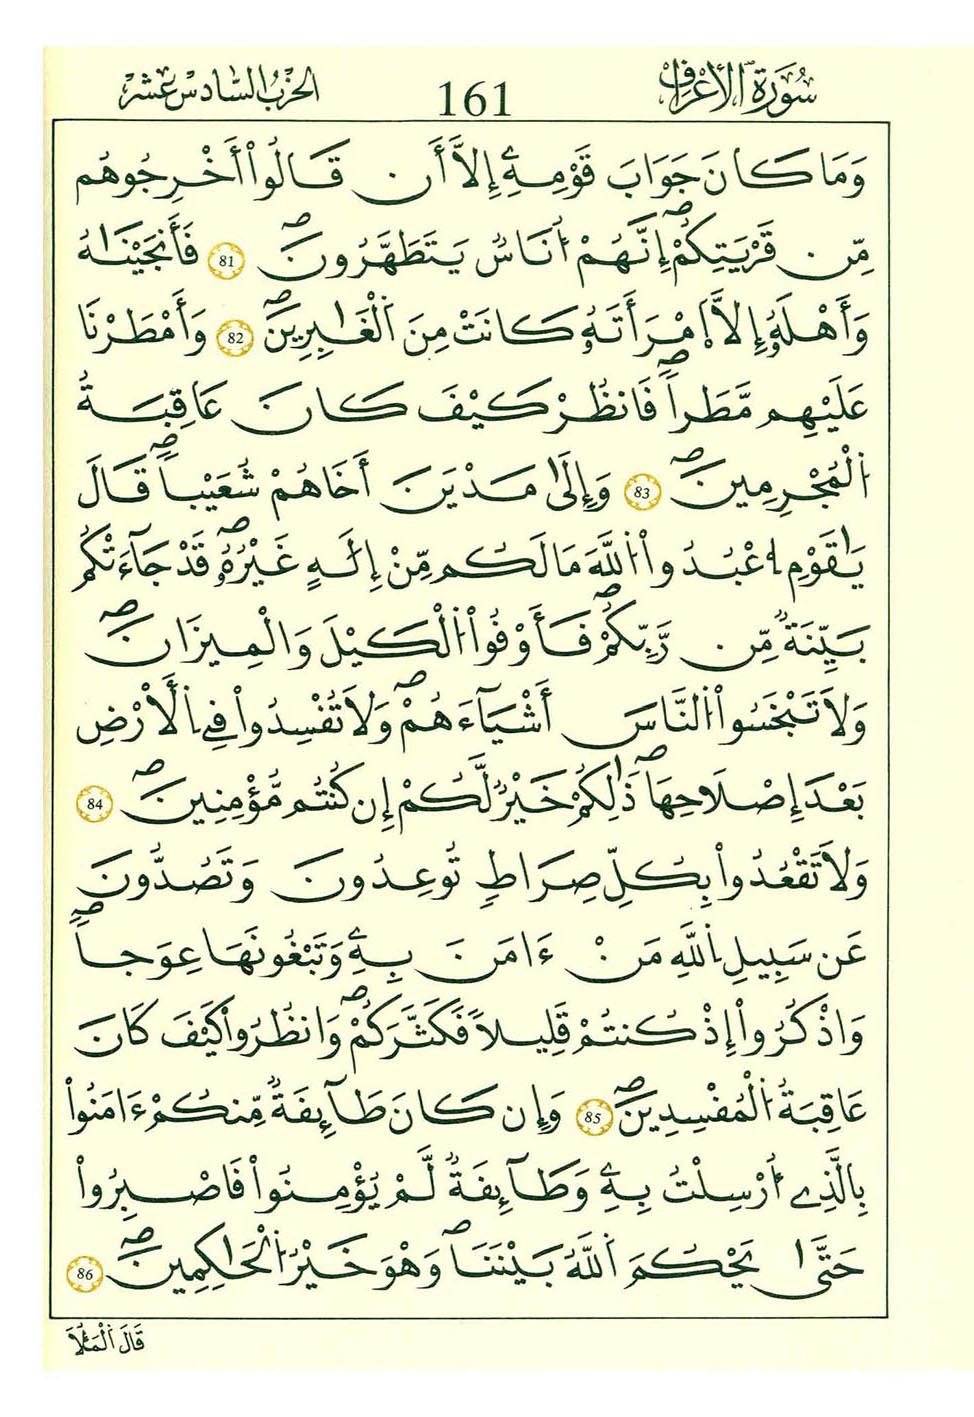 سُورَةُ الأَعْرَافِ 161 الحِزْبُ السَّادِسَ عَشَرَ
وَمَا كَانَ جَوَابَ قَوْمِهِۦٓ إِلَّآ أَن قَالُوٓاْ أَخْرِجُوهُم
مِّن قَرْيَتِكُمُۥٓۖ إِنَّهُمُۥٓ أُنَاسٞ يَتَطَهَّرُونَۖ 81 فَأَنجَيْنَٰهُ
وَأَهْلَهُۥٓ إِلَّا اَ۪مْرَأَتَهُۥ كَانَتْ مِنَ اَ۬لْغَٰبِرِينَۖ 82 وَأَمْطَرْنَا
عَلَيْهِم مَّطَراٗۖ فَانظُرْ كَيْفَ كَانَ عَاقِبَةُ
اُ۬لْمُجْرِمِينَۖ 83 وَإِلَىٰ مَدْيَنَ أَخَاهُمْ شُعَيْباٗۖ قَالَ
يَٰقَوْمِ اِ۟عْبُدُواْ اُ۬للَّهَ مَا لَكُم مِّنِ اِلَٰهٍ غَيْرُهُۥۖ قَدْ جَآءَتْكُم
بَيِّنَةٞ مِّن رَّبِّكُمْۖ فَأَوْفُواْ اُ۬لْكَيْلَ وَالْمِيزَانَۖ
وَلَا تَبْخَسُواْ اُ۬لنَّاسَ أَشْيَآءَهُمْۖ وَلَا تُفْسِدُواْ فِے اِ۬لْأَرْضِ
بَعْدَ إِصْلَٰحِهَاۖ ذَٰلِكُمْ خَيْرٞ لَّكُمُۥٓ إِن كُنتُم مُّؤْمِنِينَۖ 84
وَلَا تَقْعُدُواْ بِكُلِّ صِرَٰطٖ تُوعِدُونَ وَتَصُدُّونَ
عَن سَبِيلِ اِ۬للَّهِ مَنْ ءَامَنَ بِهِۦ وَتَبْغُونَهَا عِوَجاٗۖ
وَاذْكُرُوٓاْ إِذْ كُنتُمْ قَلِيلاٗ فَكَثَّرَكُمْۖ وَانظُرُواْ كَيْفَ كَانَ
عَاقِبَةُ اُ۬لْمُفْسِدِينَۖ 85 وَإِن كَانَ طَآئِفَةٞ مِّنكُمُۥٓ ءَامَنُواْ
بِالَّذِےٓ أُرْسِلْتُ بِهِۦ وَطَآئِفَةٞ لَّمْ يُؤْمِنُواْ فَاصْبِرُواْ
حَتَّىٰ يَحْكُمَ اَ۬للَّهُ بَيْنَنَاۖ وَهْوَ خَيْرُ اُ۬لْحَٰكِمِينَۖ 86
قَالَ اَ۬لْمَلَأُ